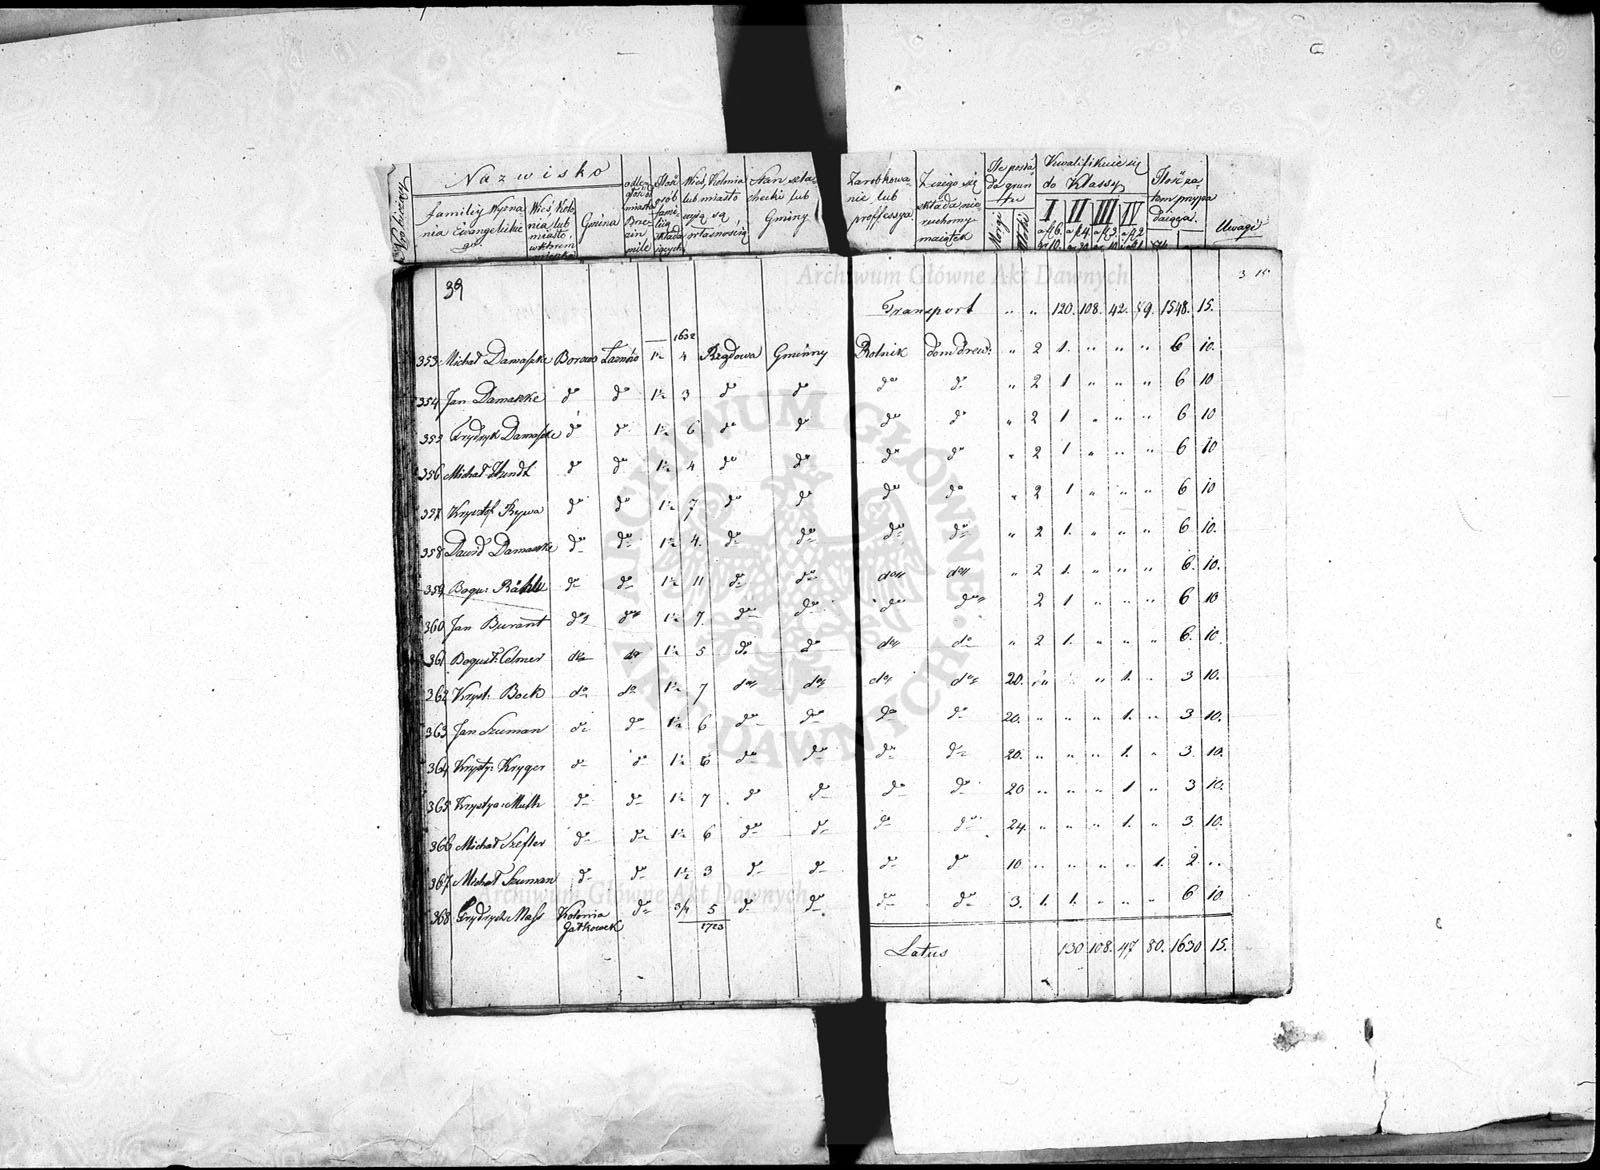 Nazwisko
familiy Wyzna
nia Ewangelickie
go
Wieś, Kolo
nia lub
miasto
Gmina
odle
głość od
miasta
Brze
zin
mile
Ilość
osób
fami
lią
składa
iących
Wieś, Kolonia
lub miasto
czyją są
własnością
Stan szla
checki lub
Gminy
Zarobkowa
nie lub
proffessya
Z czego się
składa nie
ruchomy
maiątek
Ile posia
da grun
tu
Morgi
Włoki
Kwalifikuie się
do Klassy
I II III IV
Ilość za
tem przypa
daiąca
Uwagi
Archiwum Główne Akt Dawnych
39
3 15
Transport " " 120. 108. 42. 79. 1548. 15.
1632
353 Michał Damaszke Borowo Łaznów 1½ 4 Rządowa Gminny Rolnik dom drew: " 2 1. " " " 6 10.
354 Jan Damaszke do do 1½ 3 do do do do " 2 1 " " " 6 10
355 Frydryk Damaszke do do 1½ 6 do do do do " 2 1 " " " 6 10
356 Michał Hundt do do 1½ 4 do do do do " 2 1 " " " 6 10
357 Krysztof Rywa do do 1½ 7 do do do do " 2 1 " " " 6 10
358 Dawid Damaszke do do 1½ 4. do do do do " 2 1. " " " 6 10.
359 Bogu: do do 1½ 11 do do do do " 2 1. " " " 6. 10.
360 Jan Burant do do 1½ 7. do do do do 2 1 " " " 6 10
361 Bogust: Celmer do do 1½ 5 do do do do " 2 1. " " " 6. 10.
362 Kryst: Bock do do 1½ 7 do do do do 20. " " " 1. " 3 10.
363 Jan Szuman do do 1½ 6 do do do do 20. " " " 1. " 3 10.
364 Krysty: Kryger do do 1½ 6 do do do do 20. " " " 1. " 3. 10.
365 Krystyan Muth do do 1½ 7 do do do do 20 " " " 1 " 3 10.
366 Michał Szefler do do 1½ 6 do do do do 24. " " " 1. " 3. 10.
367 Michał Szuman do do 1½ 3 do do do do 10 " " " " 1. 2. "
368 Frydrych Mass Kolonia do 3/4 5 do do do do 3. 1. 1. " " " 6 10.
Gatkowek
1723
Latus 130 108. 47 80. 1630 15.
Archiwum Główne Akt Dawnych
ARCHIWUM GŁÓWNE AKT DAWNYCH